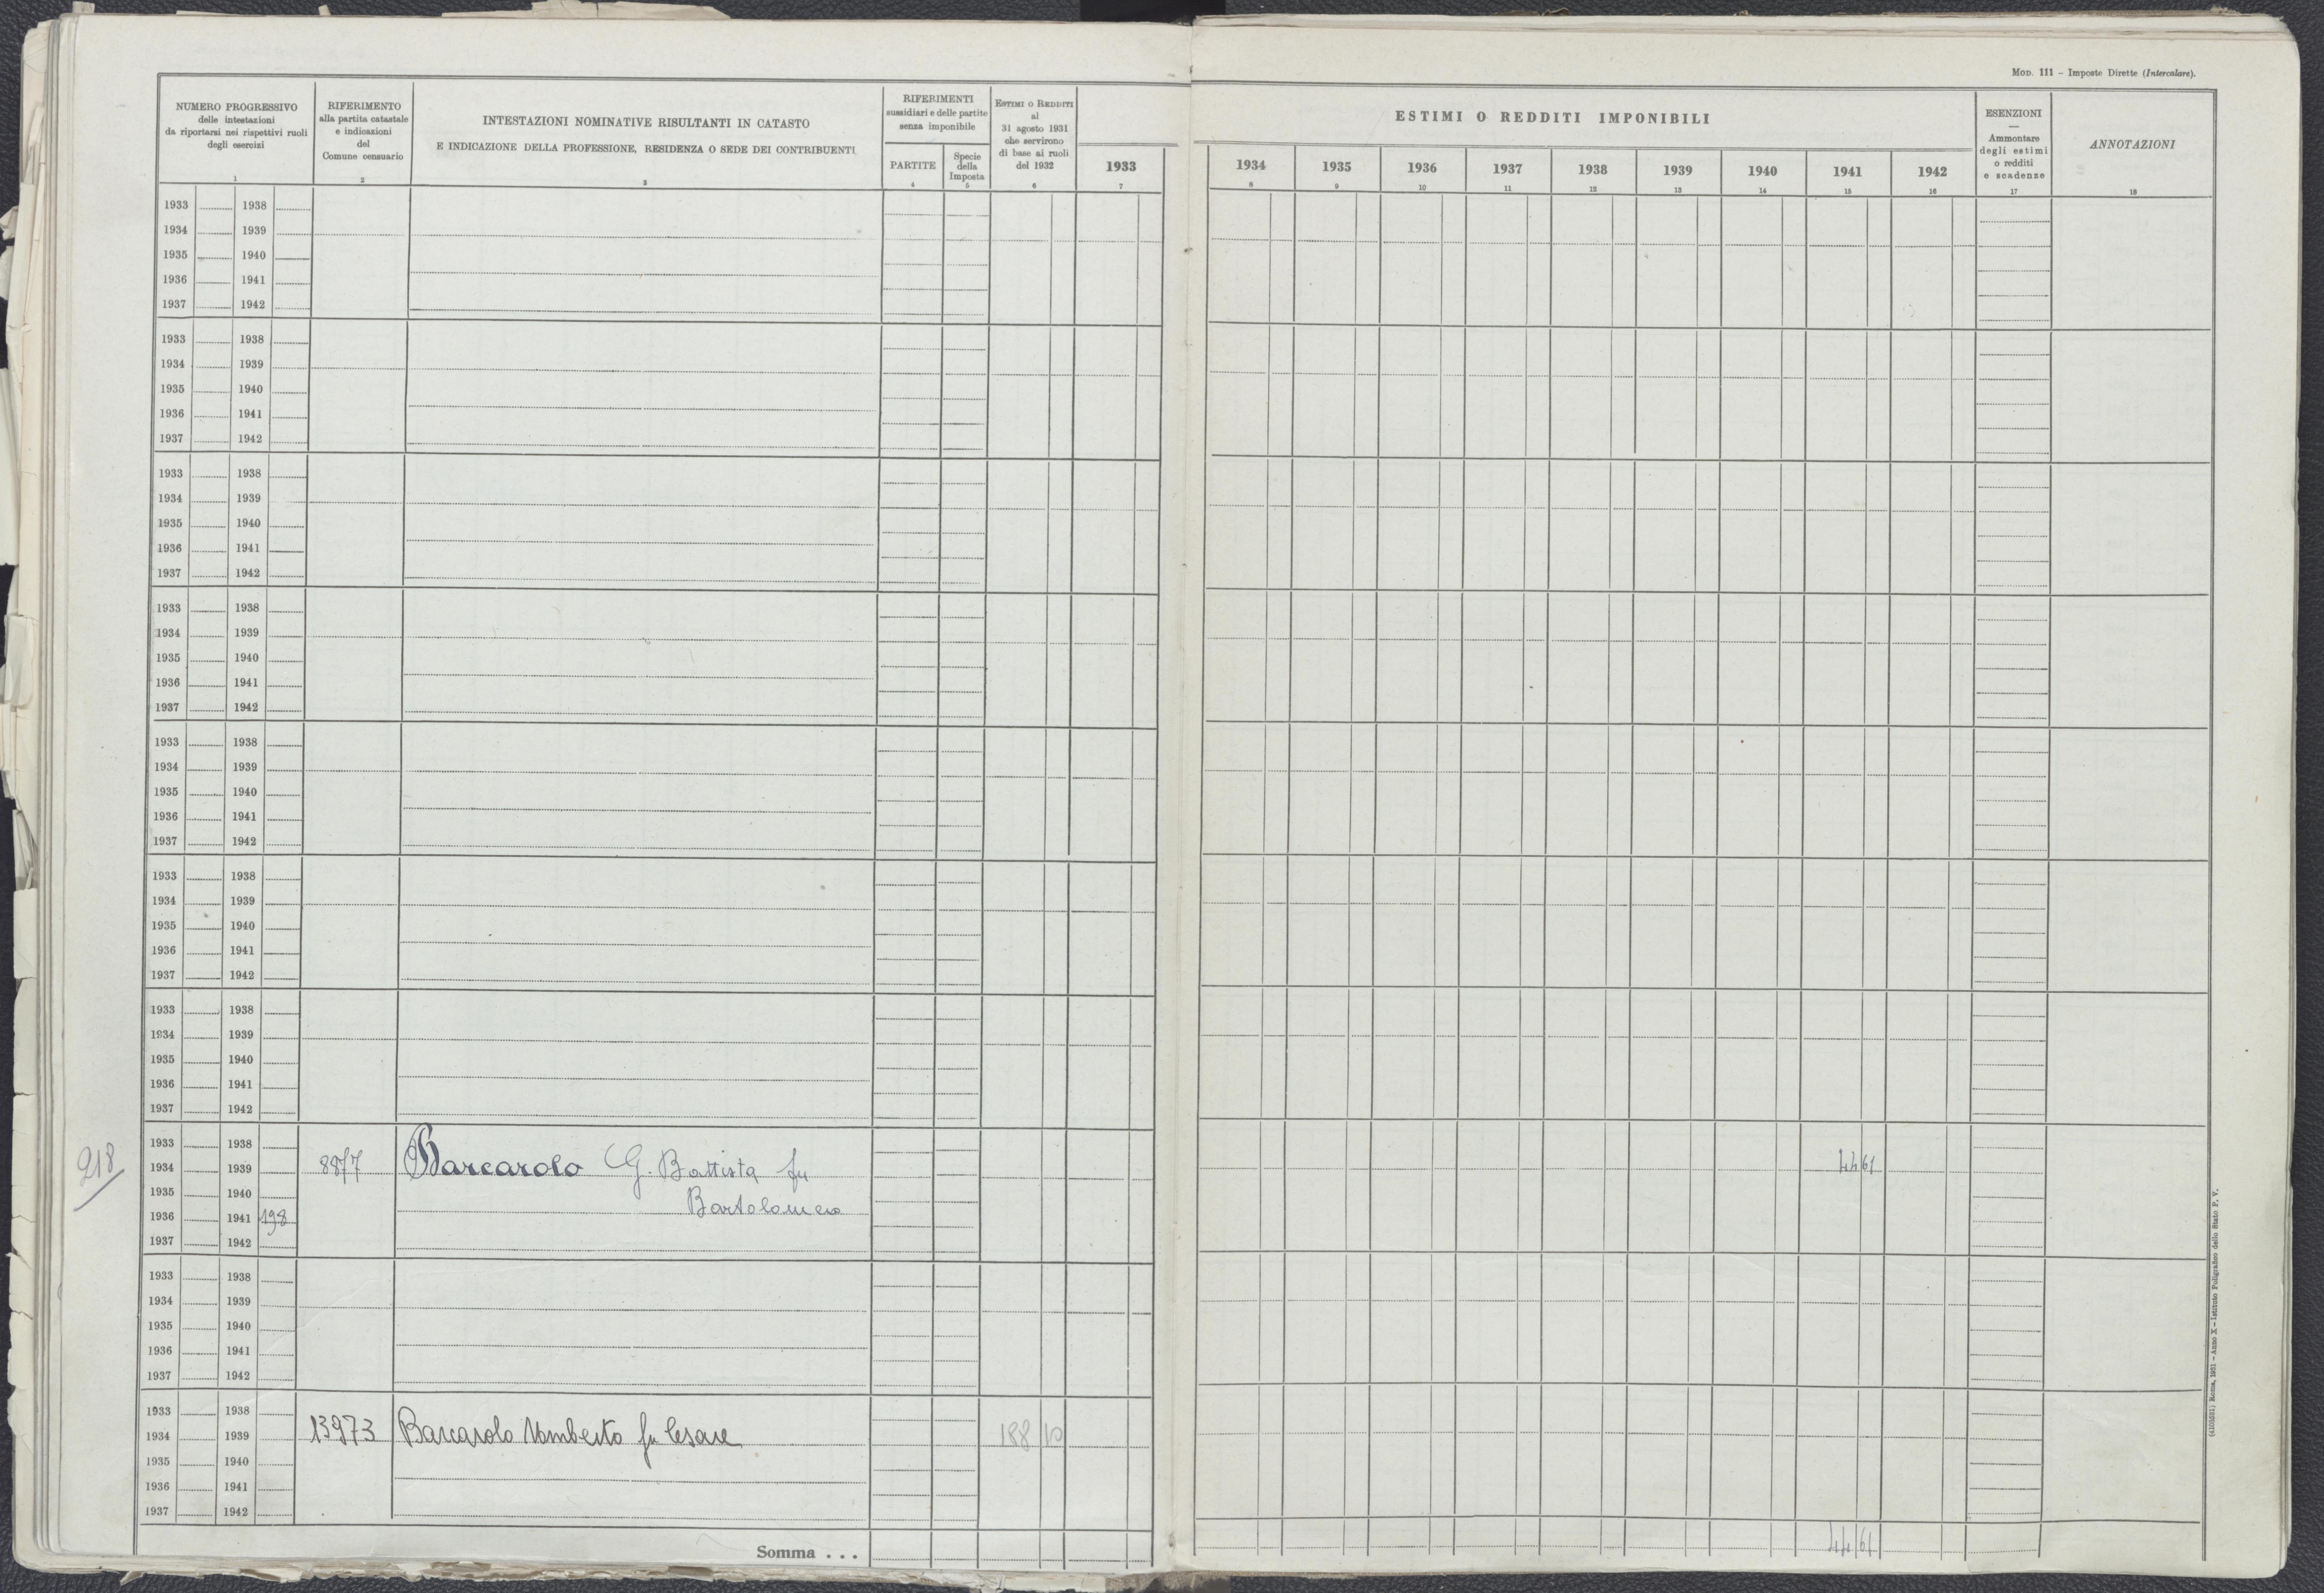 MOD. 111 - Imposte Dirette (Intercalare).
NUMERO PROGRESSIVO
delle intestazioni
da riportarsi nei rispettivi ruoli
degli esercizi
1
RIFERIMENTO
alla partita catastale
e indicazioni
del
Comune censuario
2
INTESTAZIONI NOMINATIVE RISULTANTI IN CATASTO
E INDICAZIONE DELLA PROFESSIONE, RESIDENZA O SEDE DEI CONTRIBUENTI
3
RIFERIMENTI
sussidiari e delle partite
senza imponibile
PARTITE
4
Specie
della
Imposta
5
ESTIMI O REDDITI
al
31 agosto 1931
che servirono
di base ai ruoli
del 1932
6
1933
7
ESTIMI O REDDITI IMPONIBILI
1934 1935 1936 1937 1938 1939 1940 1941 1942
8 9 10 11 12 13 14 15 16
ESENZIONI
—
Ammontare
degli estimi
o redditi
e scadenze
17
ANNOTAZIONI
18
1933 1938
1934 1939
1935 1940
1936 1941
1937 1942
1933 1938
1934 1939
1935 1940
1936 1941
1937 1942
1933 1938
1934 1939
1935 1940
1936 1941
1937 1942
1933 1938
1934 1939
1935 1940
1936 1941
1937 1942
1933 1938
1934 1939
1935 1940
1936 1941
1937 1942
1933 1938
1934 1939
1935 1940
1936 1941
1937 1942
1933 1938
1934 1939
1935 1940
1936 1941
1937 1942
218
1933 1938
1934 1939 8877 Barcarolo G. Battista fu 44 61
1935 1940 Bartolomeo
1936 1941 198
1937 1942
1933 1938
1934 1939
1935 1940
1936 1941
1937 1942
1933 1938
1934 1939 13973 Barcarolo Umberto fu Cesare 188 10
1935 1940
1936 1941
1937 1942
Somma . . . 44 61
(4103581) Roma, 1931 - Anno X - Istituto Poligrafico dello Stato P. V.